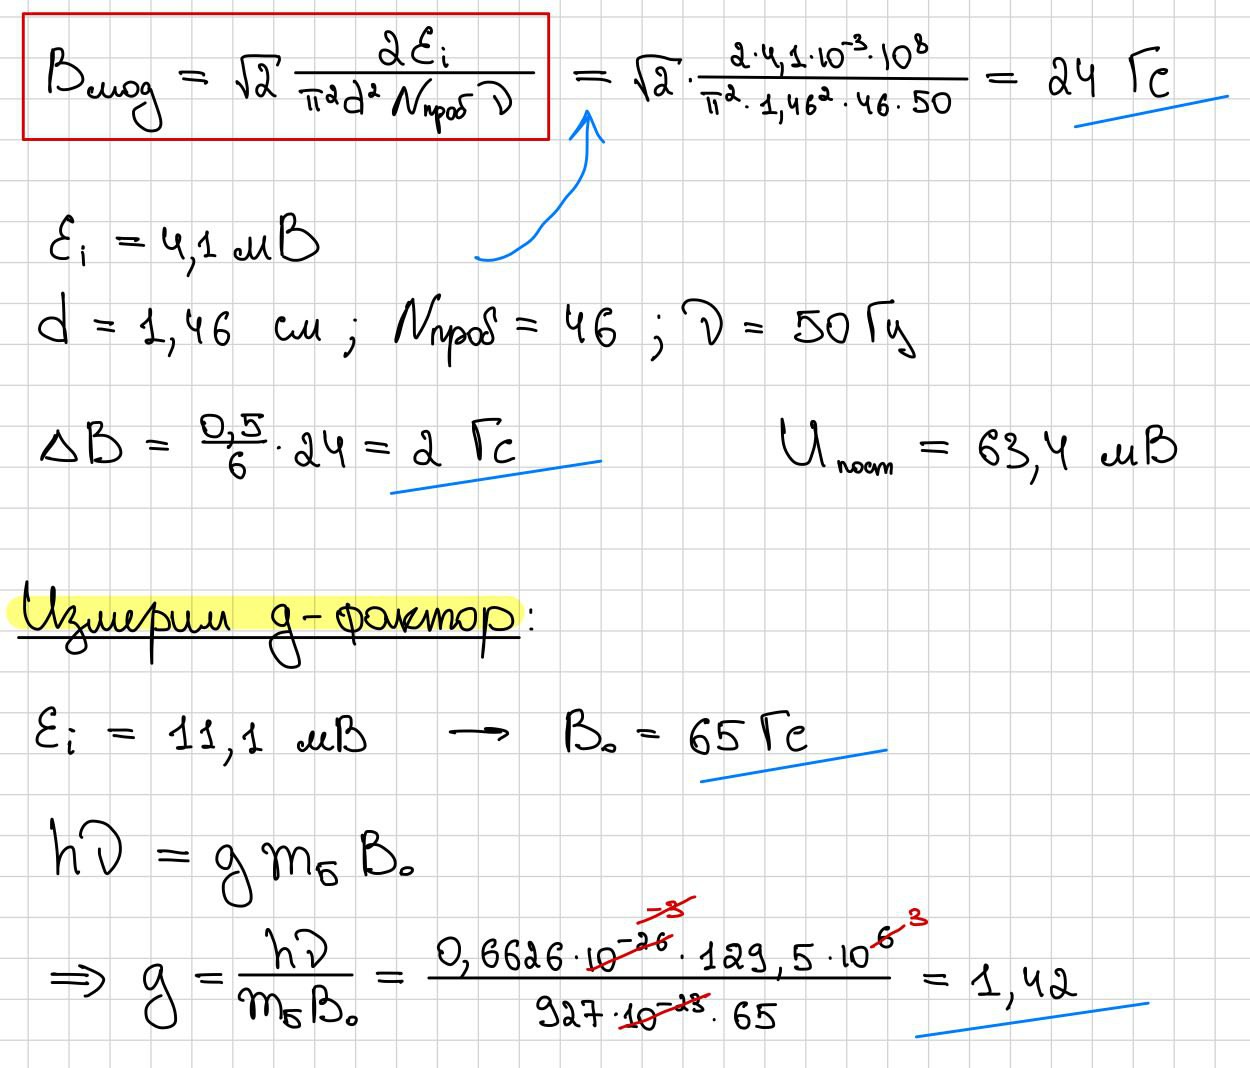 Bмод = √2 2Ɛi / π²d² Nпроб ν = √2 · 2·4,1·10⁻³·10⁸ / π²·1,46²·46·50 = 24 Гс
Ɛi = 4,1 мВ
d = 1,46 см ; Nпроб = 46 ; ν = 50 Гц
ΔB = 0,5/6 · 24 = 2 Гс Uпост = 63,4 мВ
Измерим g-фактор:
Ɛi = 11,1 мВ → B₀ = 65 Гс
hν = g mБ B₀
⇒ g = hν / mБB₀ = 0,6626·10⁻²⁶ ⁻³ · 129,5·10⁶ ³ / 927·10⁻²³·65 = 1,42